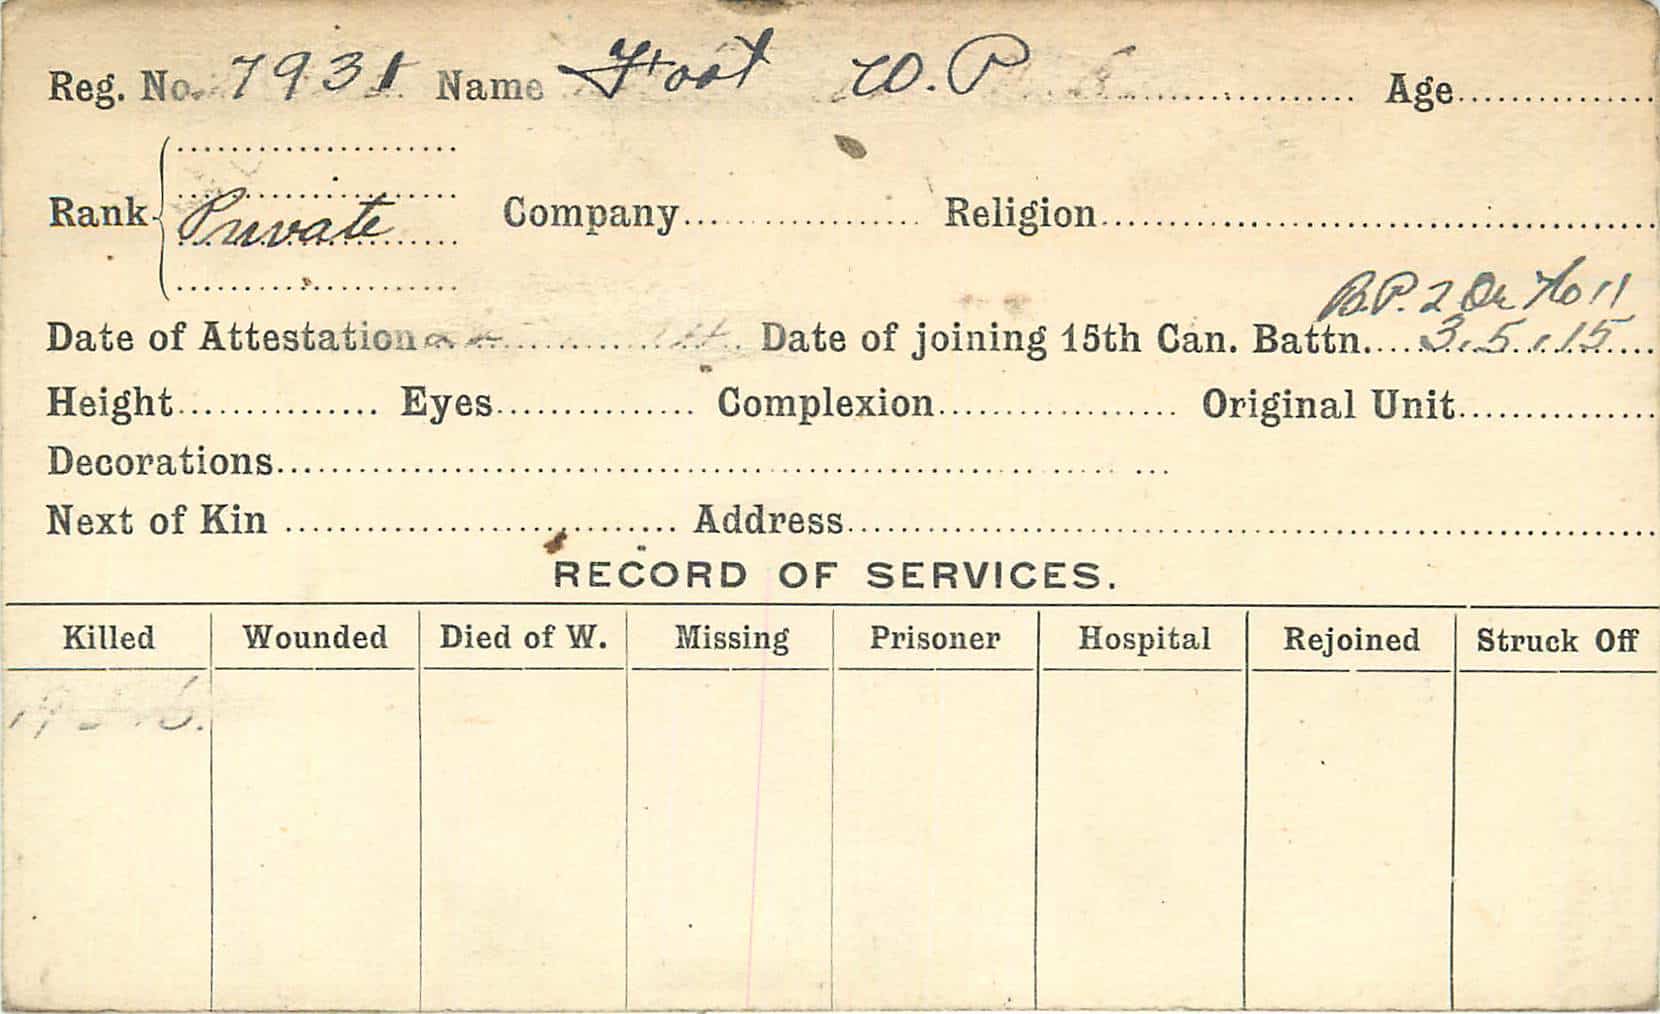 Reg. No. 7931 Name Foot W. P. Age
Rank Private Company Religion
B.P. 2 Or No 11
Date of Attestation Date of joining 15th Can. Battn. 3.5.15
Height Eyes Complexion Original Unit
Decorations
Next of Kin Address
RECORD OF SERVICES.
Killed Wounded Died of W. Missing Prisoner Hospital Rejoined Struck Off